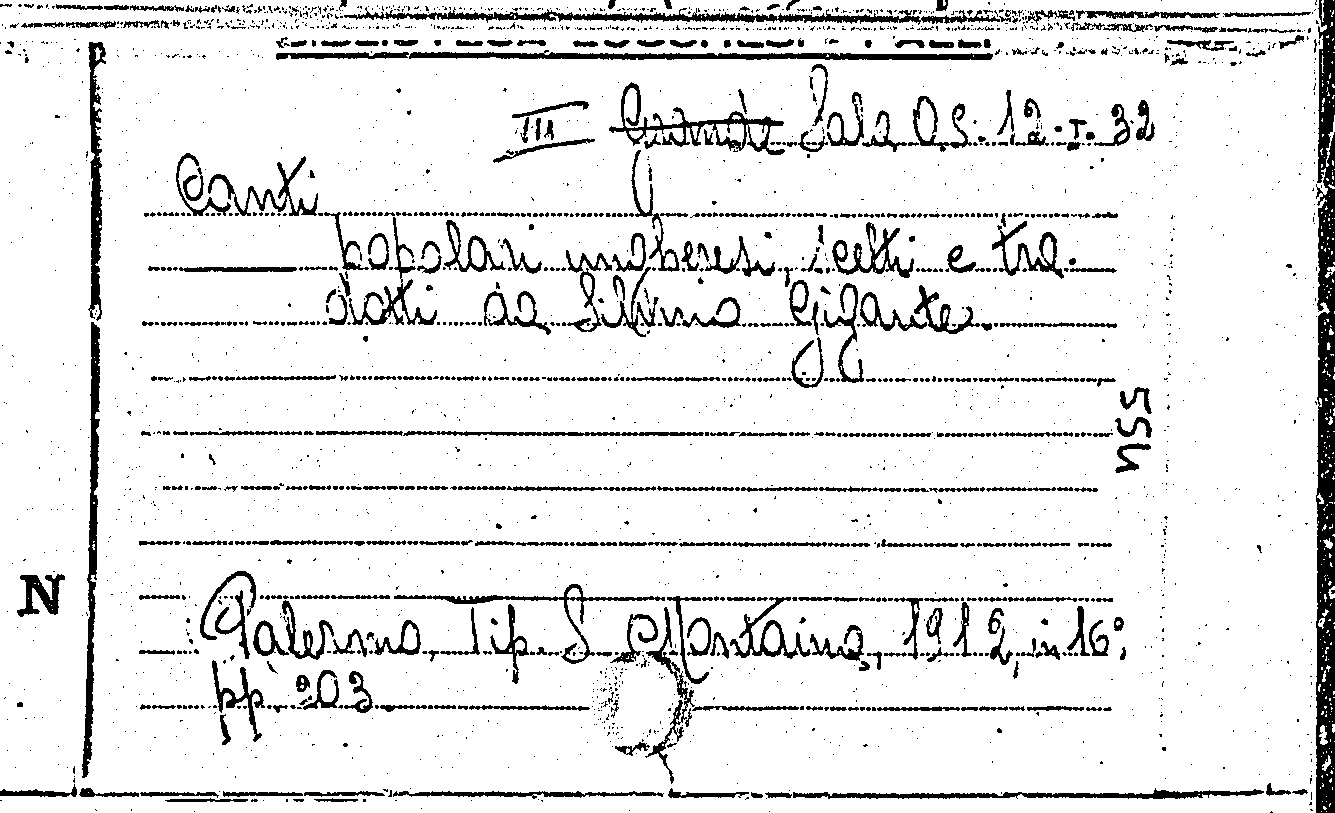 III Grande Sala O.S. 12.I.32
Canti
popolari ungheresi, scelti e tra-
dotti da Silvino Gigante.
554
N
Palermo, Tip. S. Montaina, 1912, in 16°,
pp. 203.